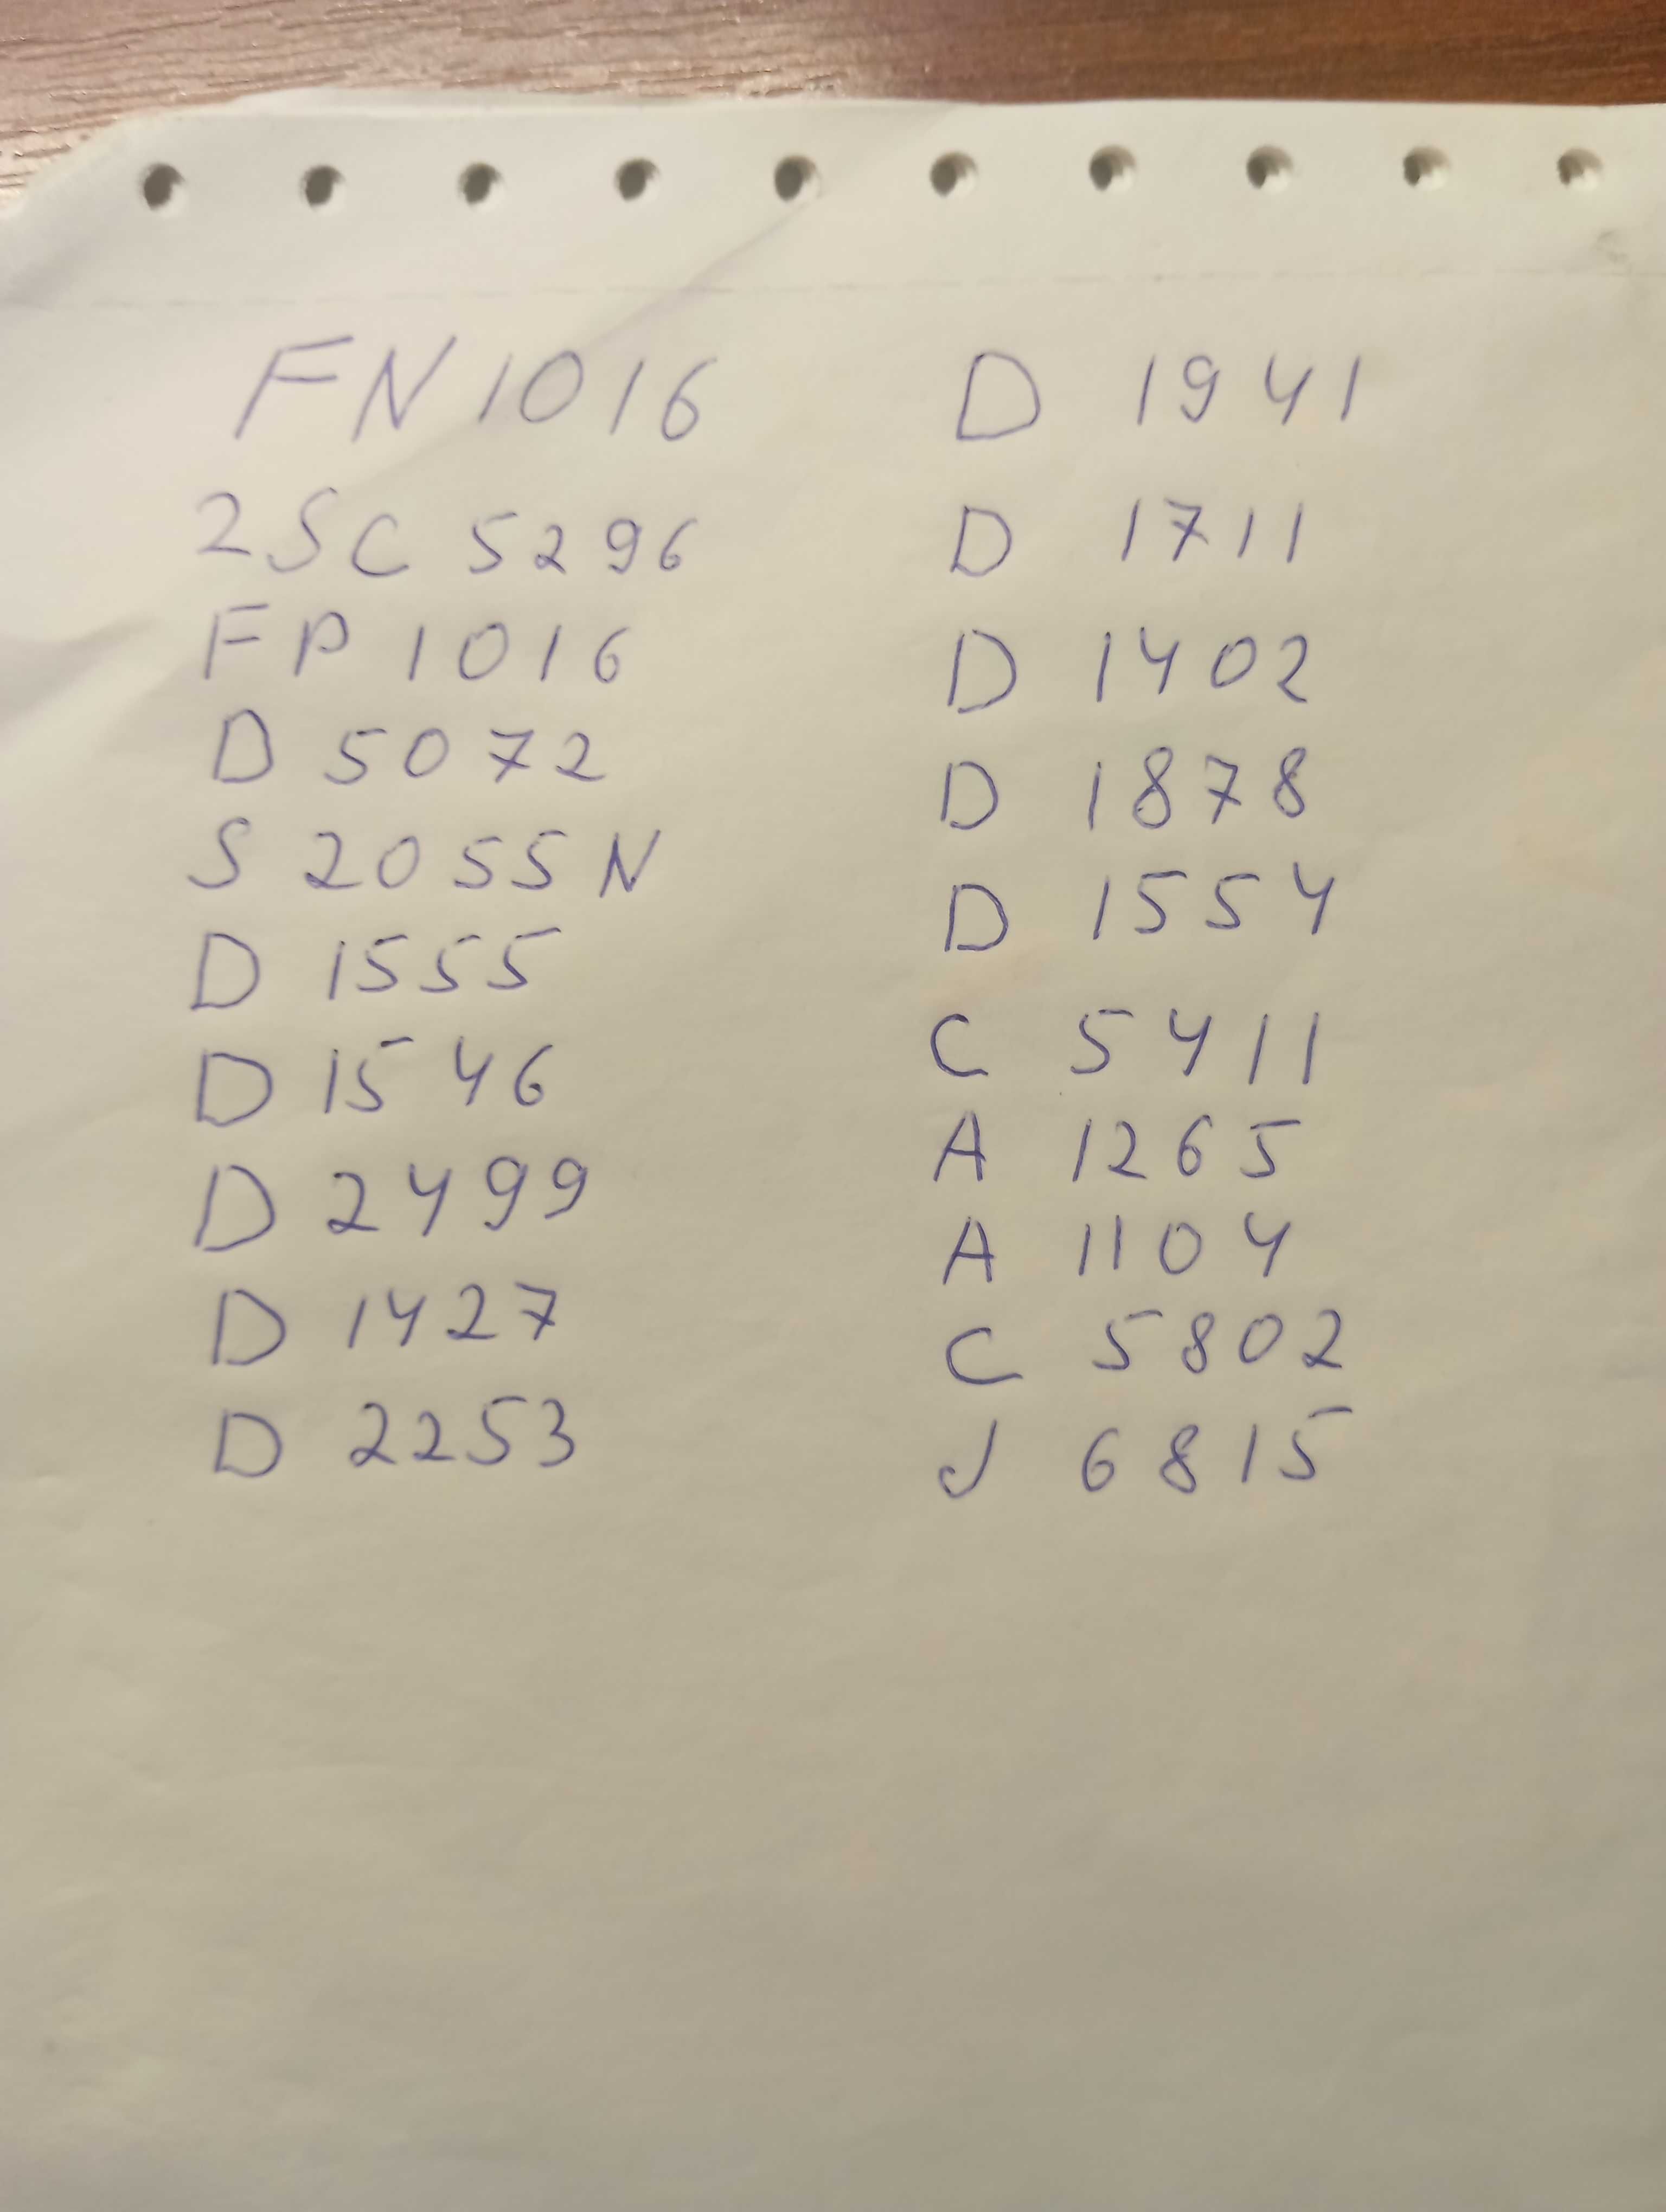 FN1016
2SC 5296
FP 1016
D 5072
S 2055N
D 1555
D 1546
D 2499
D 1427
D 2253
D 1941
D 1711
D 1402
D 1878
D 1554
C 5411
A 1265
A 1104
C 5802
J 6815